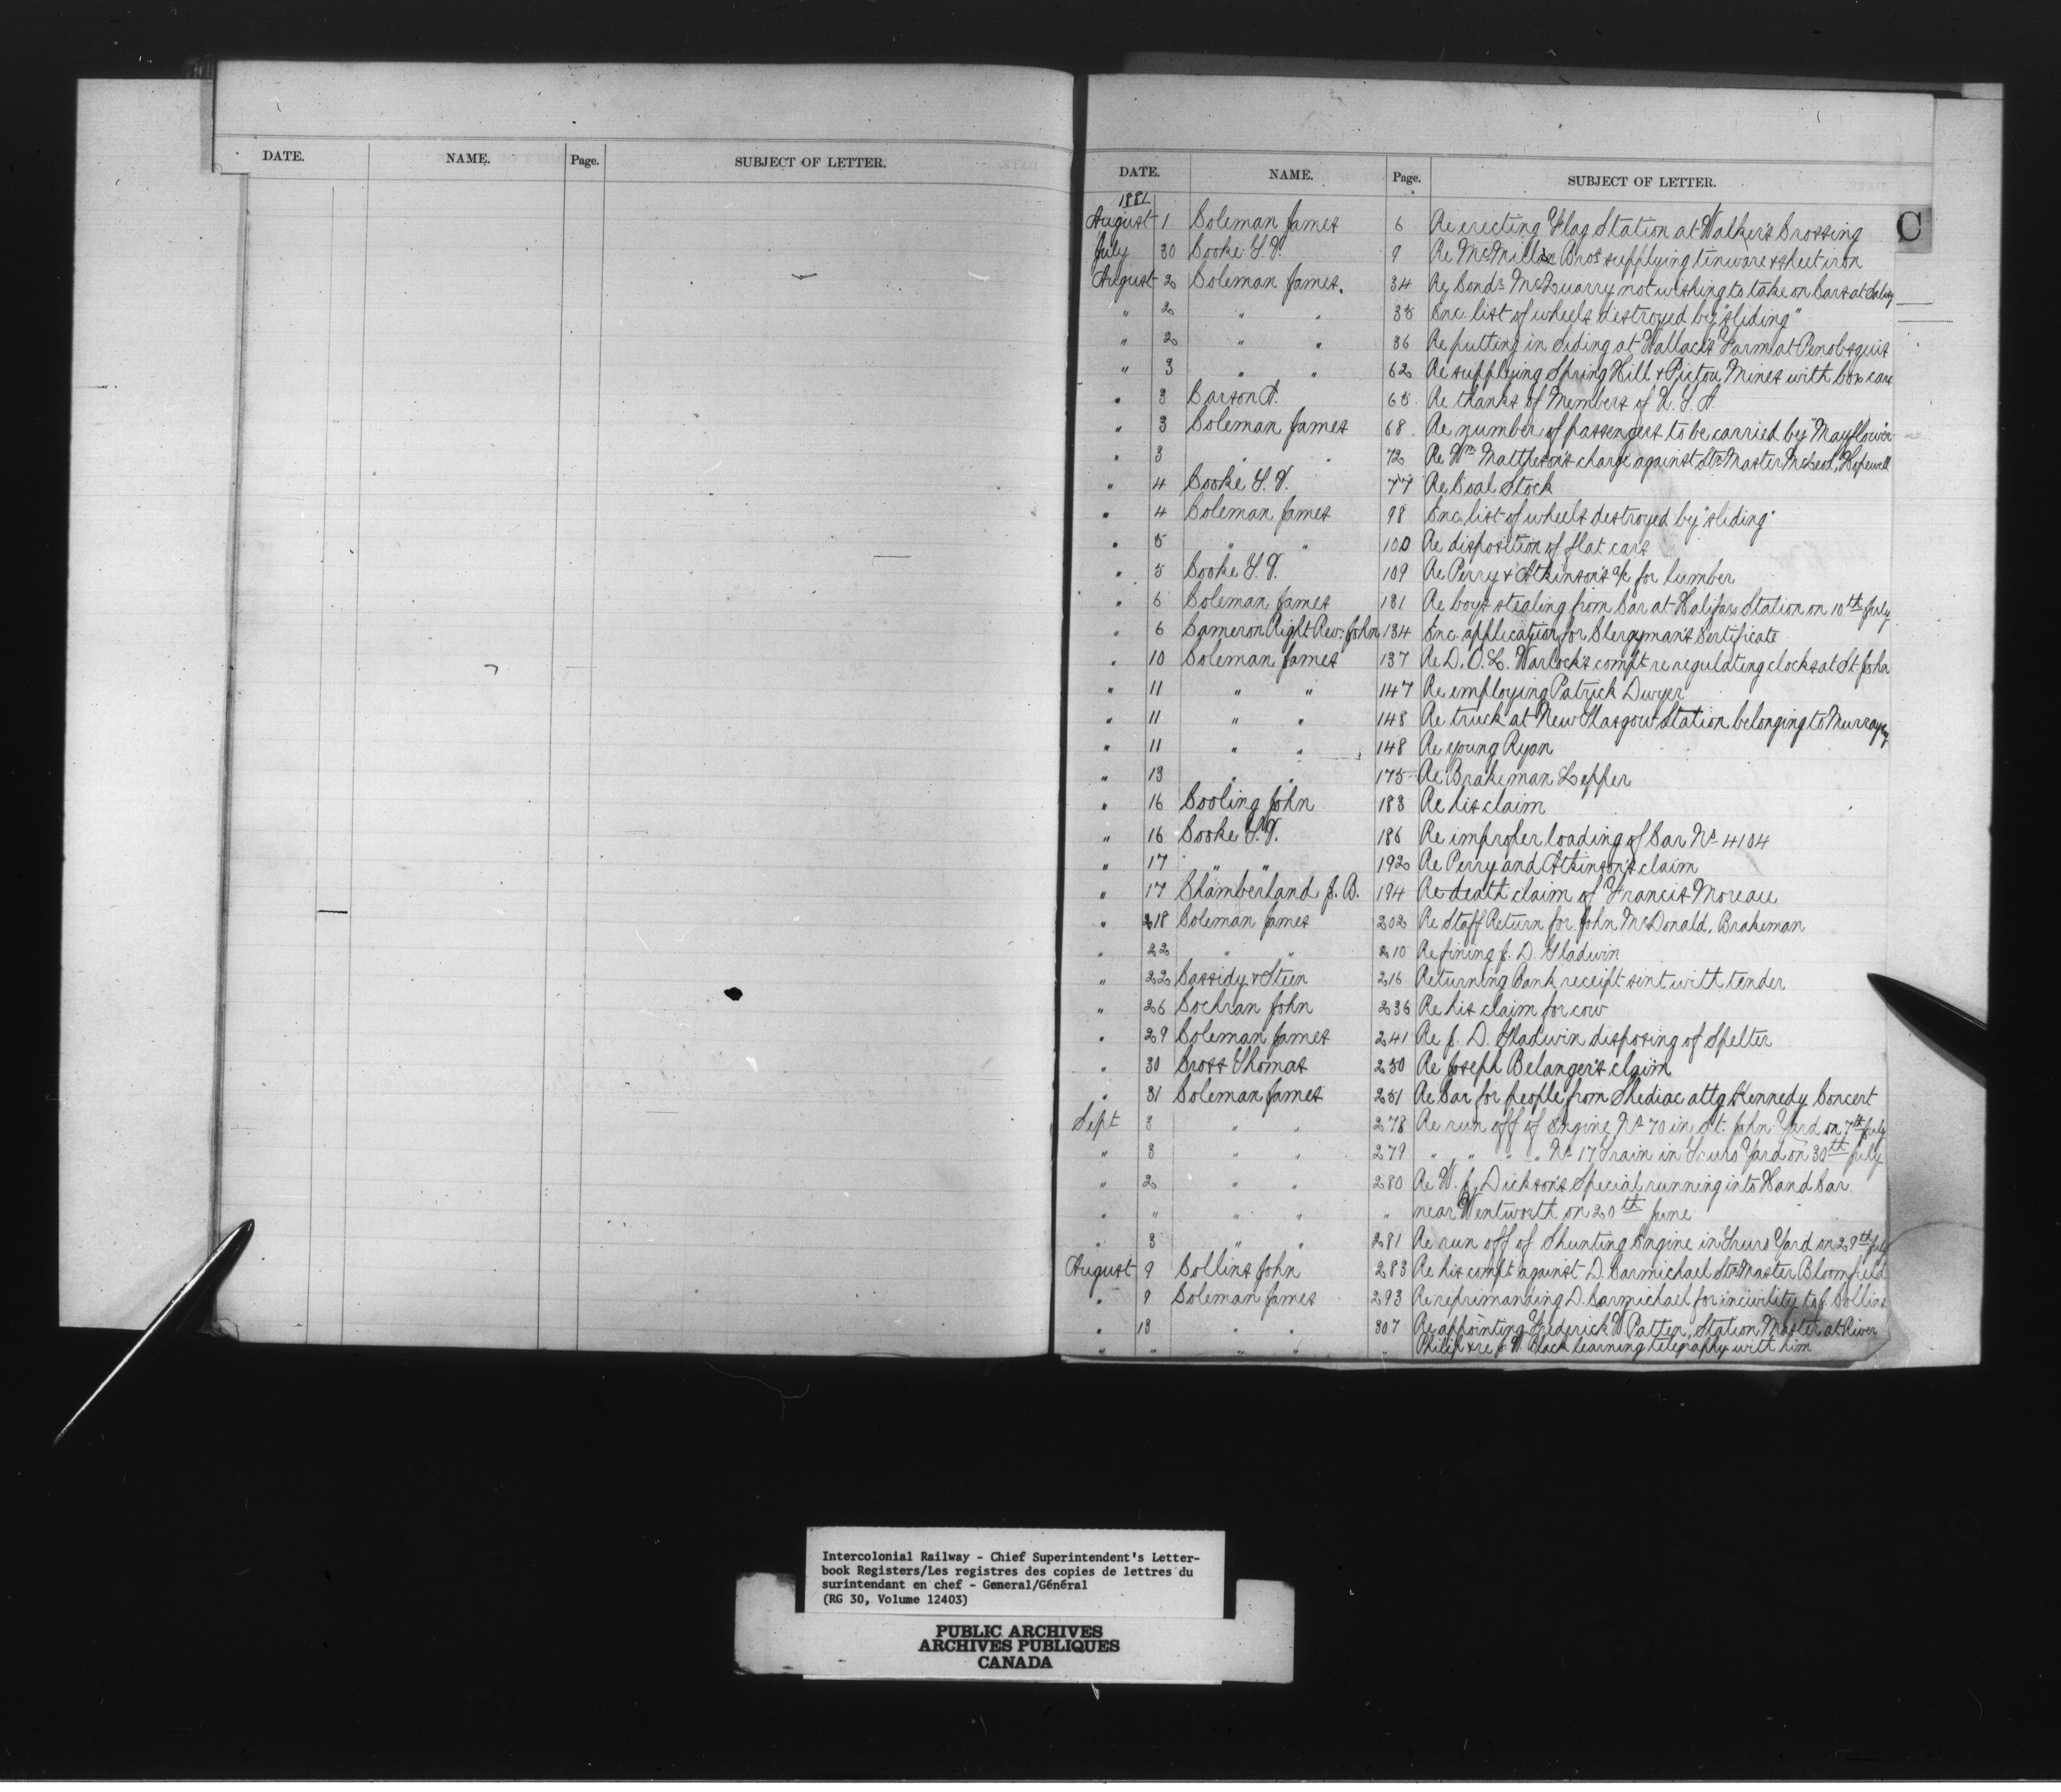 DATE. NAME. Page. SUBJECT OF LETTER.
DATE. NAME. Page. SUBJECT OF LETTER.
C
1881
August 1 Coleman James 6 Re erecting Flag Station at Walker's Crossing
July 30 Cooke T. V. 9 Re McMillan Bros supplying tinware & sheet iron
August 2 Coleman James. 34 Re Condr McQuarry not wishing to take on Cars at
" 2 " " 35 Enc. list of wheels destroyed by "sliding"
" 2 " " 36 Re putting in Siding at Wallace's Farm at Penobsquis
" 3 " " 62 Re supplying Spring Hill & Pictou Mines with box cars
" 3 Carson A. 65 Re thanks of Members of
" 3 Coleman James 68 Re number of passengers to be carried by "Mayflower
" 3 " " 72 Re Wm Mattheson's charge against Stn Master McLeod, Hopewell
" 4 Cooke T. V. 77 Re Coal Stock
" 4 Coleman James 98 Enc. list of wheels destroyed by "sliding"
" 5 " " 100 Re disposition of flat cars
" 5 Cooke T. V. 109 Re Perry & Atkinson's a/c for lumber
" 6 Coleman James 131 Re boys stealing from Car at Halifax Station on 10th July
" 6 Cameron Right Rev: John 134 Enc. application for Clergyman's Certificate
" 10 Coleman James 137 Re D. O. L. Warlock's complt re regulating clocks at St. John
" 11 " " 147 Re employing Patrick Dwyer
" 11 " " 148 Re truck at New Glasgow Station belonging to Murray
" 11 " " 148 Re young Ryan
" 13 " " 175 Re Brakeman Lepper
" 16 Cooling John 183 Re his claim
" 16 Cooke T. V. 186 Re improper loading of Car No 4104
" 17 " " 192 Re Perry and Atkinson's claim
" 17 Chamberland J. B. 194 Re death claim of Francis Moreau
" 18 Coleman James 202 Re Staff Return for John McDonald, Brakeman
" 22 " " 210 Re fining J. D. Gladwin
" 22 Cassidy & Steen 216 Returning Bank receipt sent with tender
" 26 Cochran John 236 Re his claim for cow
" 29 Coleman James 241 Re J. D. Gladwin disposing of Spelter
" 30 Cross Thomas 250 Re Joseph Belanger's claim
" 31 Coleman James 251 Re Car for people from Shediac attg Kennedy Concert
Sept 3 " " 278 Re run off of Engine No 70 in St. John Yard on 7th July
" 3 " " 279 " " " " No 17 Train in Truro Yard on 30th July
" 2 " " 280 Re W. J. Dickson's Special running into Hand Car
" " " " " near Wentworth on 20th June
" 3 " " 281 Re run off of Shunting Engine in Truro Yard on 29th July
August 9 Collins John 283 Re his complt against D. Carmichael Stn Master Bloomfield
" 9 Coleman James 293 Re reprimanding D. Carmichael for incivility to J. Collins
" 18 " " 307 Re appointing Frederick W Patten, Station Master at River
" " " " " Philip & re J. W. Black learning telegraphy with him
Intercolonial Railway - Chief Superintendent's Letter-
book Registers/Les registres des copies de lettres du
surintendant en chef - General/Général
(RG 30, Volume 12403)
PUBLIC ARCHIVES
ARCHIVES PUBLIQUES
CANADA